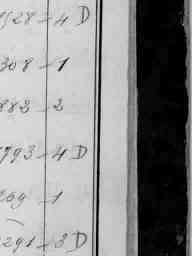 1528 - 4 D
308 - 1
883 - 2
793 - 4 D
269 - 1
291 - 3 D